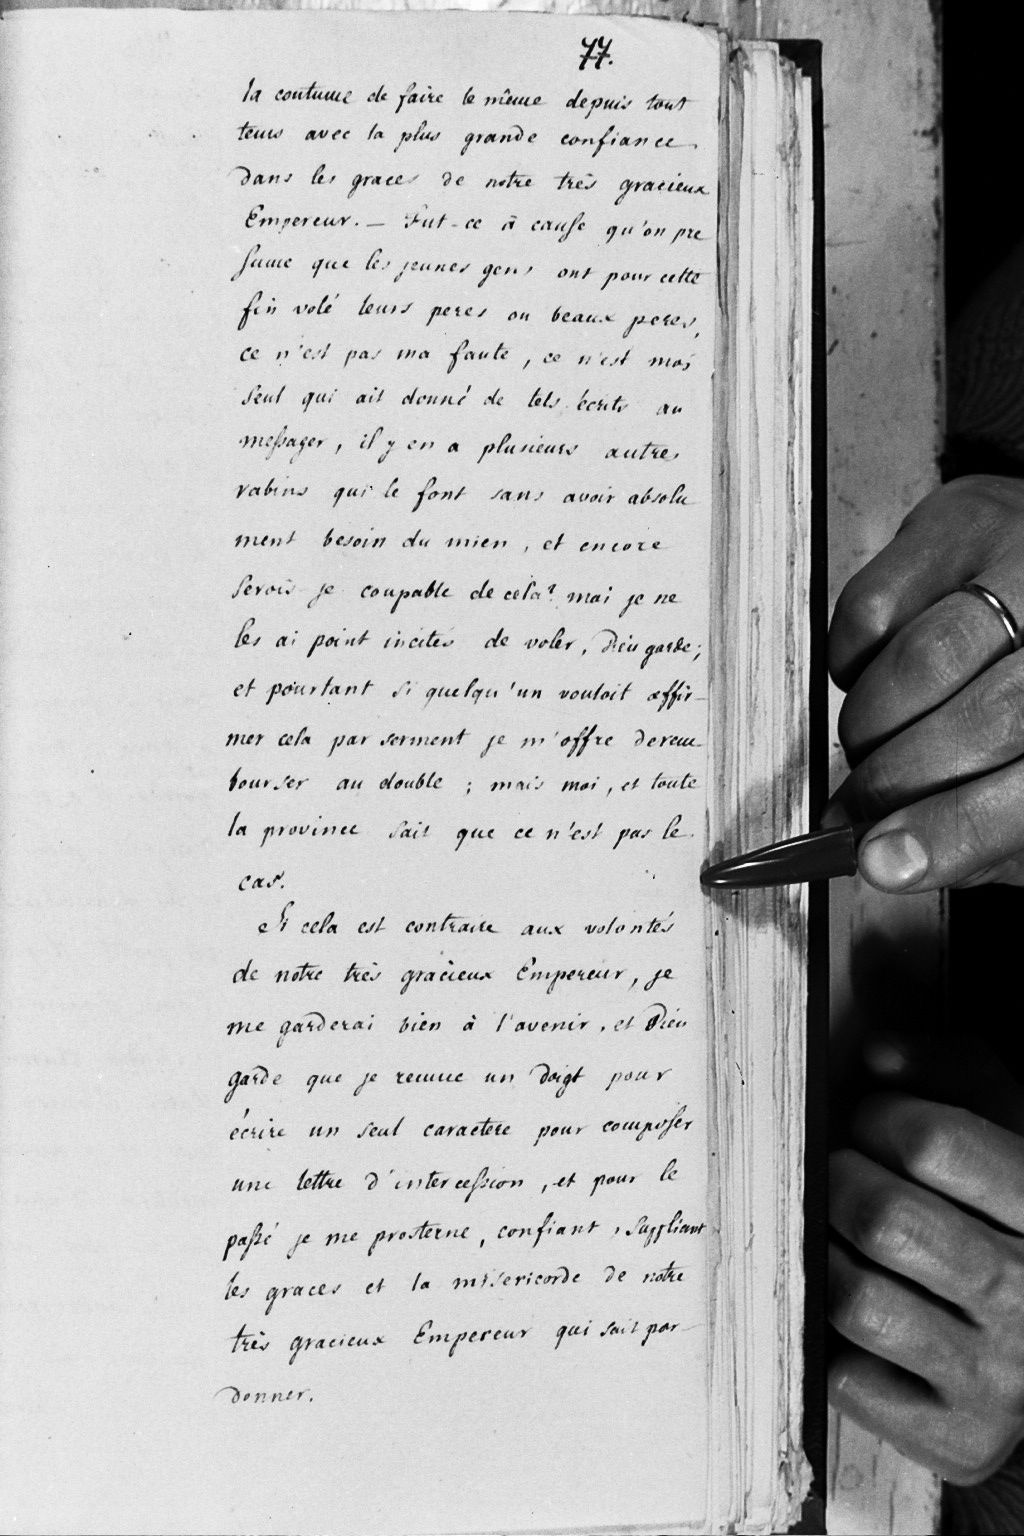 77.
la coutume de faire le même depuis tout
tems avec la plus grande confiance
dans les graces de notre très gracieux
Empereur. — Fut-ce à cause qu'on pre
sume que les jeunes gens ont pour cette
fin volé leurs peres ou beaux peres,
ce n'est pas ma faute, ce n'est moi
seul qui ait donné de tels écrits au
messager, il y en a plusieurs autres
rabins qui le font sans avoir absolu
ment besoin du mien, et encore
serois je coupable de cela? moi je ne
les ai point incités de voler, Dieu garde;
et pourtant si quelqu'un vouloit affir-
mer cela par serment je m'offre derem-
bourser au double ; mais moi, et toute
la province sait que ce n'est pas le
cas.
Si cela est contraire aux volontés
de notre très gracieux Empereur, je
me garderai bien à l'avenir, et Dieu
garde que je remue un doigt pour
écrire un seul caractere pour composer
une lettre d'intercession, et pour le
passé je me prosterne, confiant, suppliant
les graces et la misericorde de notre
très gracieux Empereur qui sait par-
donner.